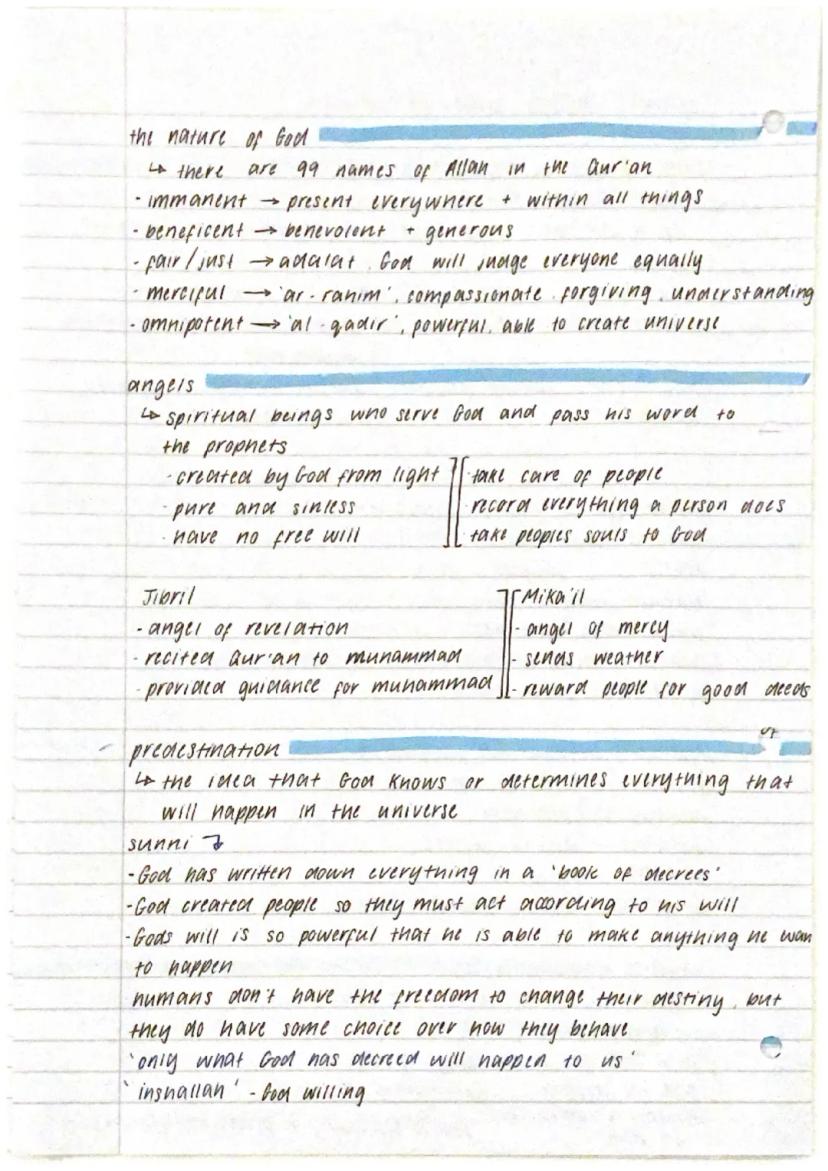 the nature of God
↳ there are 99 names of Allah in the Qur'an
- immanent → present everywhere + within all things
- beneficent → benevolent + generous
- fair/just → adalat, God will judge everyone equally
- merciful → 'ar-rahim', compassionate, forgiving, understanding
- omnipotent → 'al-qadir', powerful, able to create universe
angels
↳ spiritual beings who serve God and pass his word to
the prophets
- created by God from light
- pure and sinless
- have no free will
- take care of people
- record everything a person does
- take peoples souls to God
Jibril
- angel of revelation
- recited Qur'an to muhammad
- provided guidance for muhammad
Mika'il
- angel of mercy
- sends weather
- reward people for good deeds
predestination
↳ the idea that God knows or determines everything that
will happen in the universe
sunni ↴
- God has written down everything in a 'book of decrees'
- God created people so they must act according to his will
- Gods will is so powerful that he is able to make anything he wan
to happen
humans don't have the freedom to change their destiny, but
they do have some choice over how they behave
'only what God has decreed will happen to us'
'inshallah' - God willing